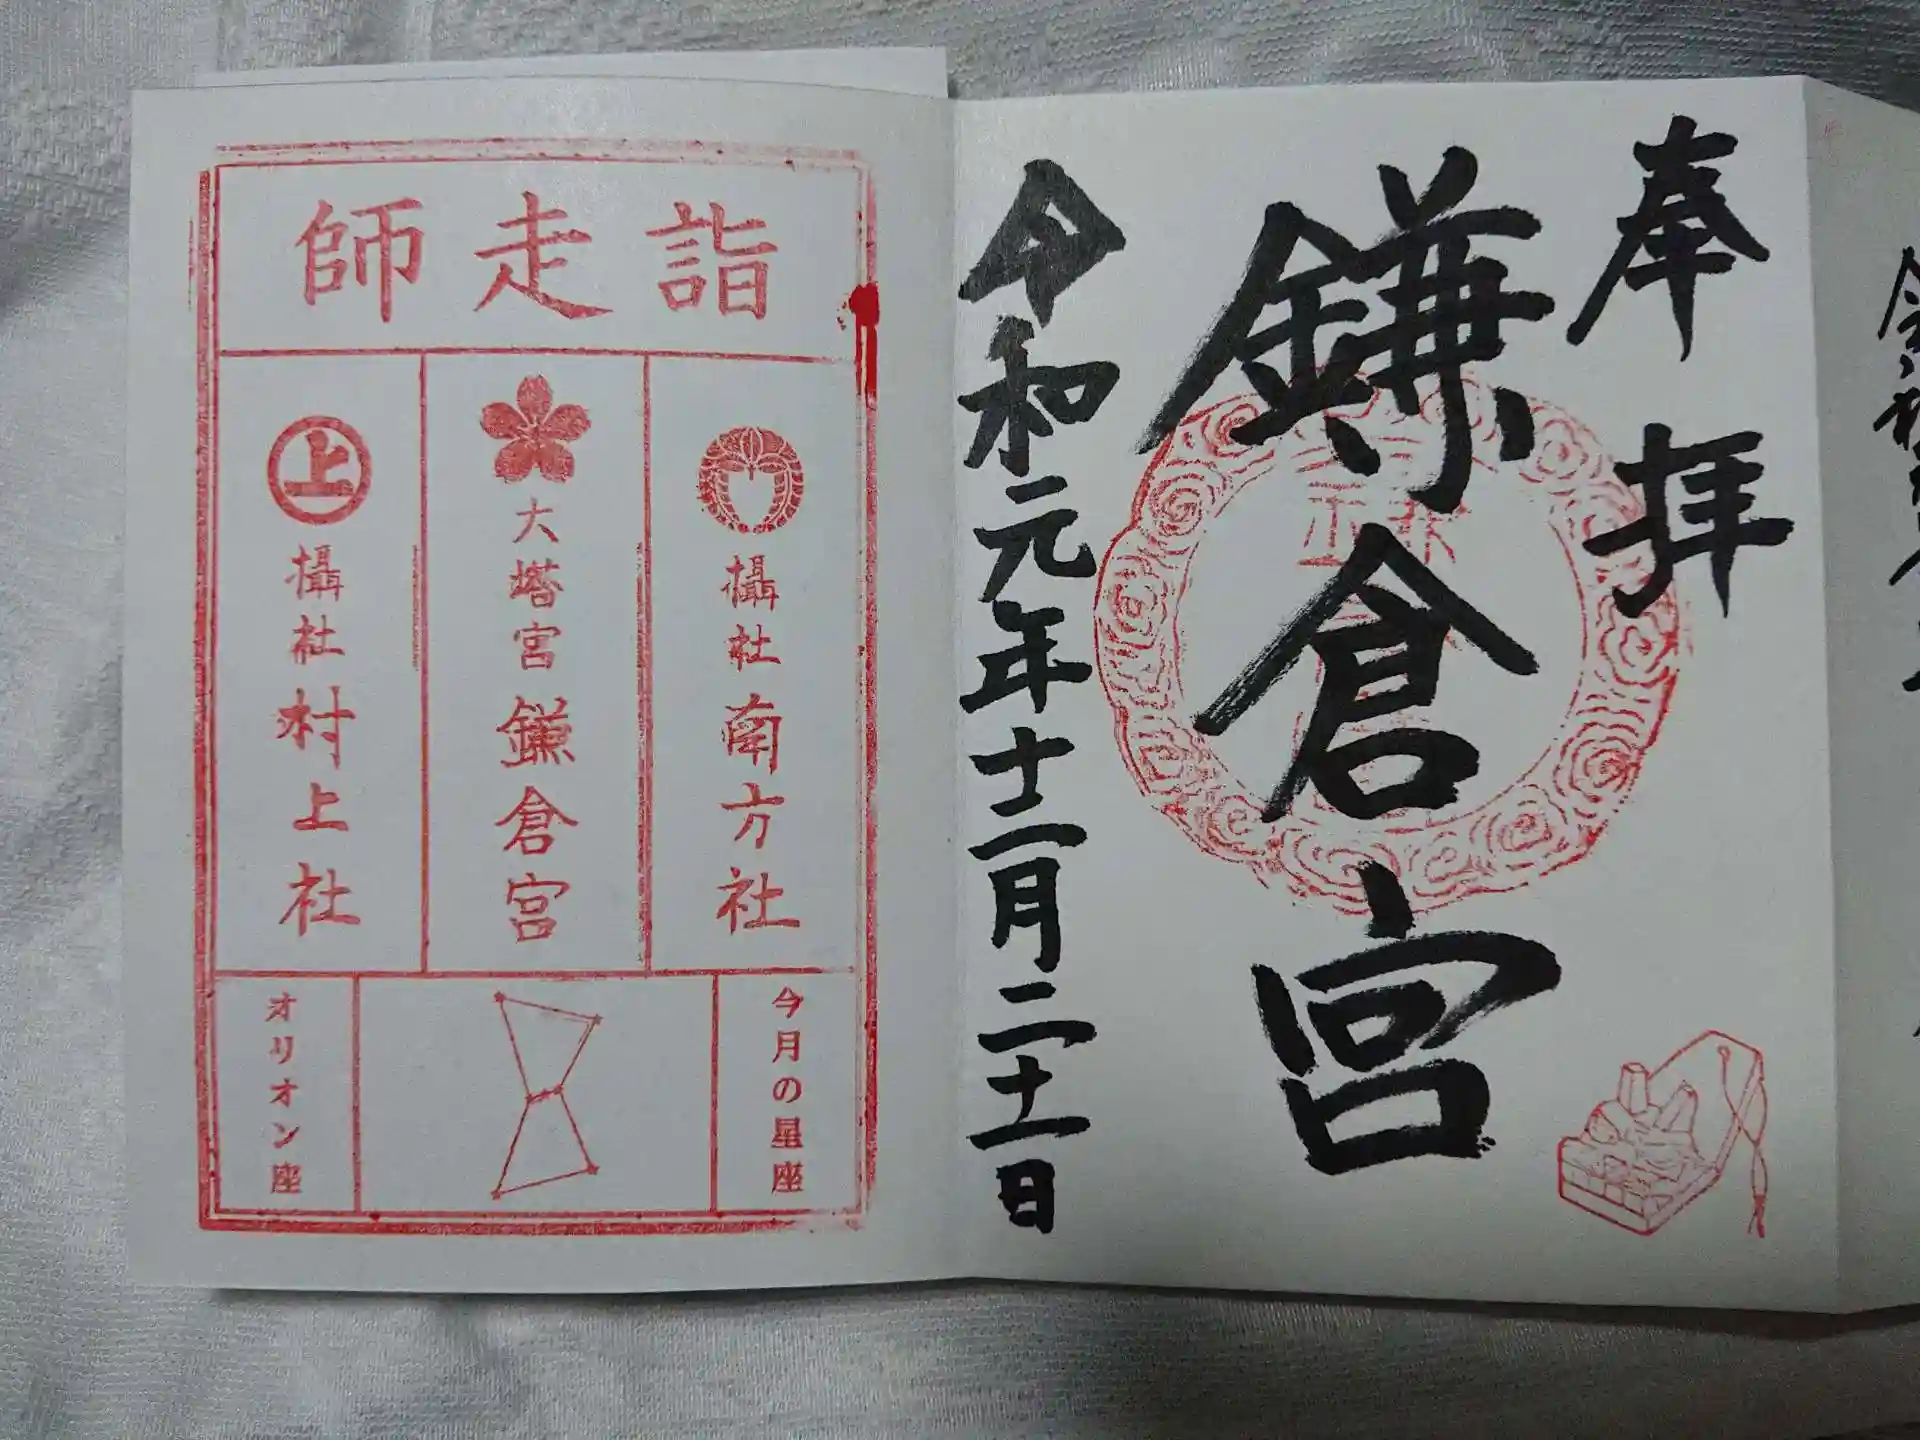 奉拝
鎌倉宮
令和元年十二月二十一日
師走詣
攝社 南方社
大塔宮 鎌倉宮
上
攝社 村上社
今月の星座
オリオン座